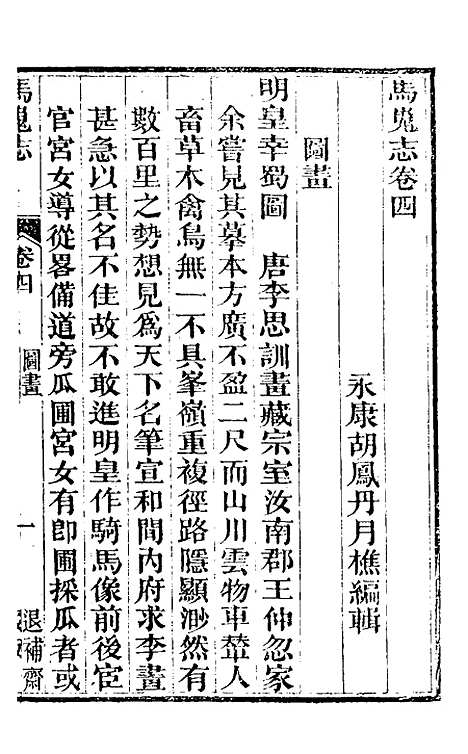 馬嵬志卷四
永康胡鳳丹月樵編輯
圖畫
明皇幸蜀圖　唐李思訓畫藏宗室汝南郡王仲忽家
余嘗見其摹本方廣不盈二尺而山川雲物車輦人
畜草木禽鳥無一不具峯嶺重複徑路隱顯渺然有
數百里之勢想見爲天下名筆宣和間內府求李畫
甚急以其名不佳故不敢進明皇作騎馬像前後宦
官宮女導從畧備道旁瓜圃宮女有卽圃採瓜者或
馬嵬志
卷四
圖畫
一
退補齋